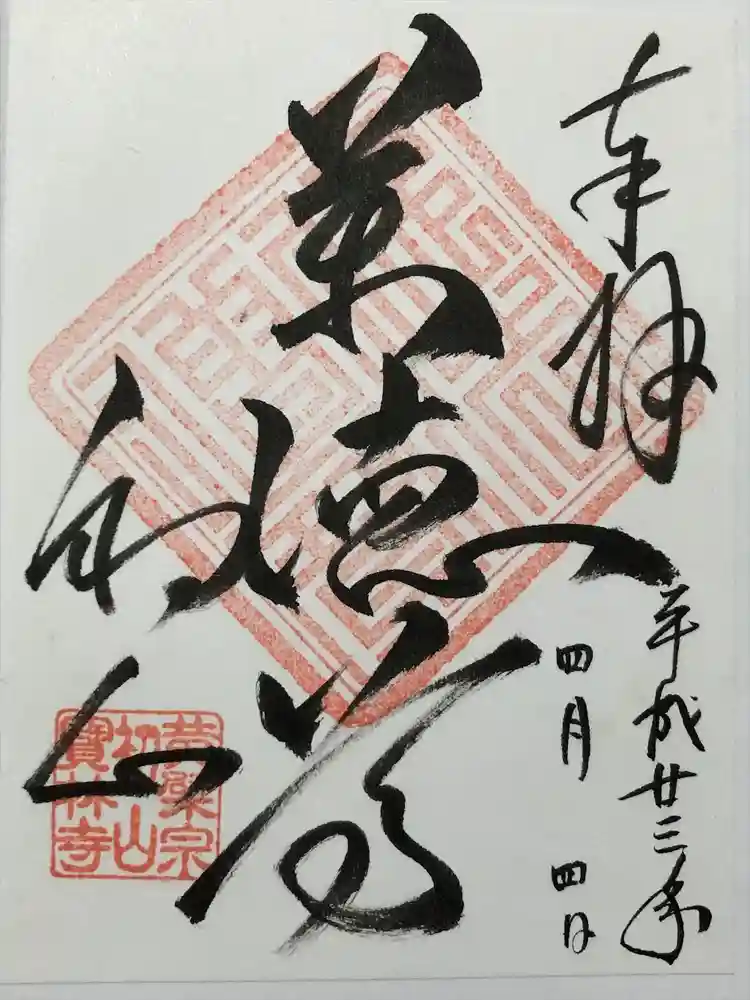 奉拝
平成廿三年
四月 四日
萬徳尊
初山
黄檗宗
初山
寶林寺